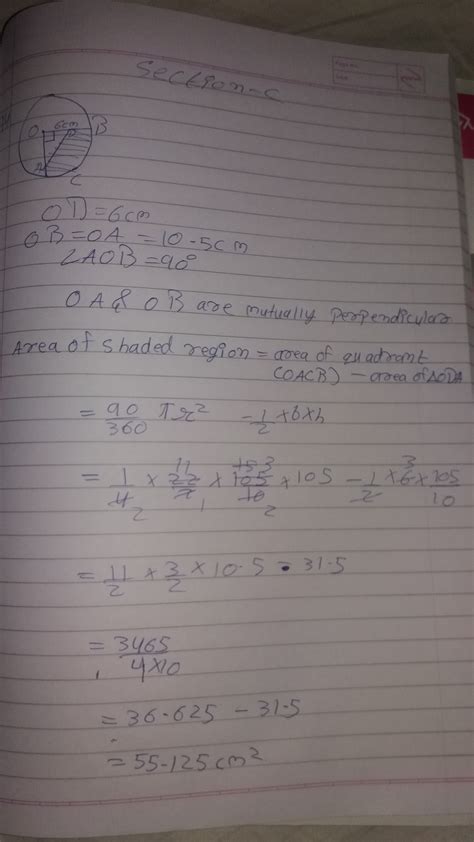 Section-C
O 6cm D B
A
C
OD=6cm
OB=OA =10.5cm
∠AOB=90°
OA & OB are mutually perpendicular
Area of shaded region = area of quadrant
(OACB) - area of ΔODA
= 90/360 πr² - 1/2 × b × h
= 1/4 × 22/7 × 105/10 × 105 - 1/2 × 6 × 105/10
= 11/2 × 3/2 × 10.5 - 31.5
= 3465/4×10
= 36.625 - 31.5
= 55.125 cm²